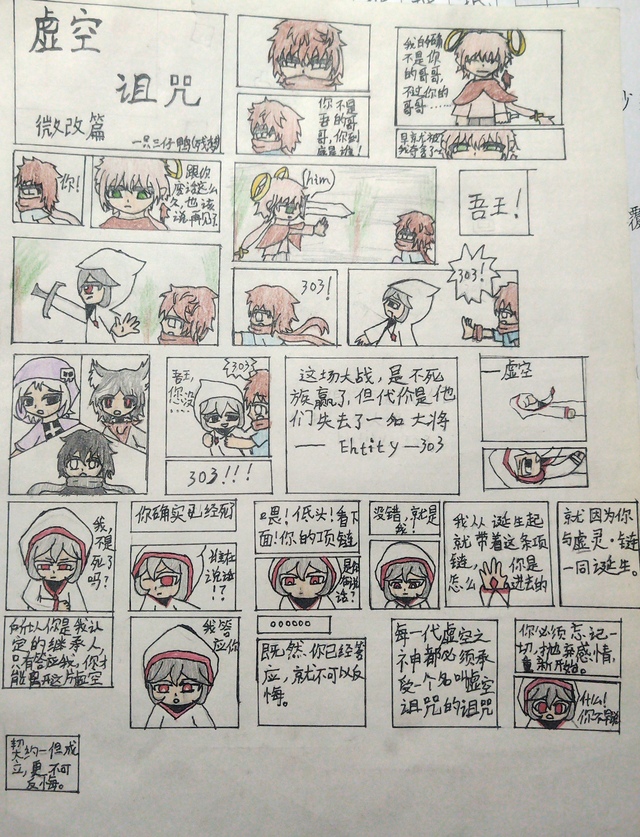 虚空
诅咒
微改篇
一只三仔鸭(残梦)
你不是
吾的哥
哥,你到
底是谁!
我的确
不是你
的哥哥,
不过你的
哥哥……
早就被
我夺舍了~
你!
跟你
废话这么
久,也该
说再见了
(him)
吾王!
303!
303!
吾王,
你没…
303!
303!!!
这场大战,是不死
族赢了,但代价是他
们失去了一知大将
——Ehtity—303
—虚空
我,
不是
死了
吗?
你确实已经死
谁在
说话
!?
喂!低头!看下
面!你的项链
是你
在说
话?
没错,就是
我!
我从诞生起
就带着这条项
链,你是
怎么进去的
就因为你
与虚灵·链
一同诞生。
所以你是我认
定的继承人,
只有答应我,你才
能离开这片虚空
我答
应你
……
既然你已经答
应,就不可以反
悔。
每一代虚空之
神都必须承
受一个名叫虚空
诅咒的诅咒
你必须忘记一
切,抛弃感情,
重新开始。
什么!
你不早说
契约一但成
立,更不可
反悔。